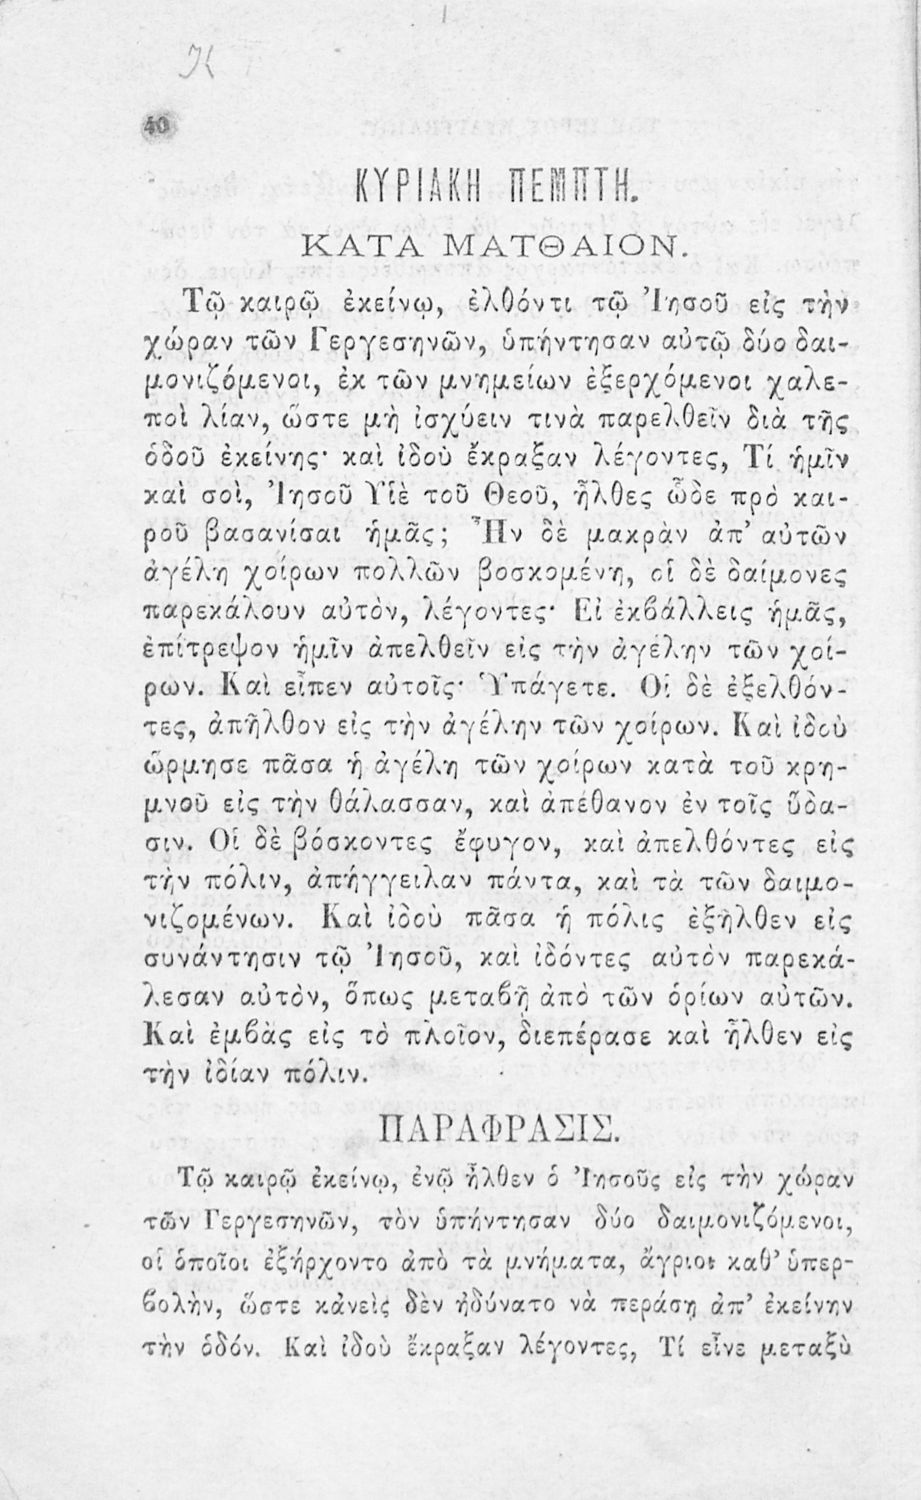 40
ΚΥΡΙΑΚΗ ΠΕΜΠΤΗ.
ΚΑΤΑ ΜΑΤΘΑΙΟΝ.
Τῷ καιρῷ ἐκείνῳ, ἐλθόντι τῷ Ἰησοῦ εἰς τὴν
χώραν τῶν Γεργεσηνῶν, ὑπήντησαν αὐτῷ δύο δαι-
μονιζόμενοι, ἐκ τῶν μνημείων ἐξερχόμενοι χαλε-
ποὶ λίαν, ὥστε μὴ ἰσχύειν τινὰ παρελθεῖν διὰ τῆς
ὁδοῦ ἐκείνης· καὶ ἰδοὺ ἔκραξαν λέγοντες, Τί ἡμῖν
καὶ σοὶ, Ἰησοῦ Υἱὲ τοῦ Θεοῦ, ἦλθες ὧδε πρὸ και-
ροῦ βασανίσαι ἡμᾶς; Ἦν δὲ μακρὰν ἀπ’ αὐτῶν
ἀγέλη χοίρων πολλῶν βοσκομένη, οἱ δὲ δαίμονες
παρεκάλουν αὐτὸν, λέγοντες· Εἰ ἐκβάλλεις ἡμᾶς,
ἐπίτρεψον ἡμῖν ἀπελθεῖν εἰς τὴν ἀγέλην τῶν χοί-
ρων. Καὶ εἶπεν αὐτοῖς· Ὑπάγετε. Οἱ δὲ ἐξελθόν-
τες, ἀπῆλθον εἰς τὴν ἀγέλην τῶν χοίρων. Καὶ ἰδοὺ
ὥρμησε πᾶσα ἡ ἀγέλη τῶν χοίρων κατὰ τοῦ κρη-
μνοῦ εἰς τὴν θάλασσαν, καὶ ἀπέθανον ἐν τοῖς ὕδα-
σιν. Οἱ δὲ βόσκοντες ἔφυγον, καὶ ἀπελθόντες εἰς
τὴν πόλιν, ἀπήγγειλαν πάντα, καὶ τὰ τῶν δαιμο-
νιζομένων. Καὶ ἰδοὺ πᾶσα ἡ πόλις ἐξῆλθεν εἰς
συνάντησιν τῷ Ἰησοῦ, καὶ ἰδόντες αὐτὸν παρεκά-
λεσαν αὐτὸν, ὅπως μεταβῇ ἀπὸ τῶν ὁρίων αὐτῶν.
Καὶ ἐμβὰς εἰς τὸ πλοῖον, διεπέρασε καὶ ἦλθεν εἰς
τὴν ἰδίαν πόλιν.
ΠΑΡΑΦΡΑΣΙΣ.
Τῷ καιρῷ ἐκείνῳ, ἐνῷ ἦλθεν ὁ Ἰησοῦς εἰς τὴν χώραν
τῶν Γεργεσηνῶν, τὸν ὑπήντησαν δύο δαιμονιζόμενοι,
οἱ ὁποῖοι ἐξήρχοντο ἀπὸ τὰ μνήματα, ἄγριοι καθ’ ὑπερ-
βολὴν, ὥστε κἀνεὶς δὲν ἠδύνατο νὰ περάσῃ ἀπ’ ἐκείνην
τὴν ὁδόν. Καὶ ἰδοὺ ἔκραξαν λέγοντες, Τί εἶνε μεταξὺ